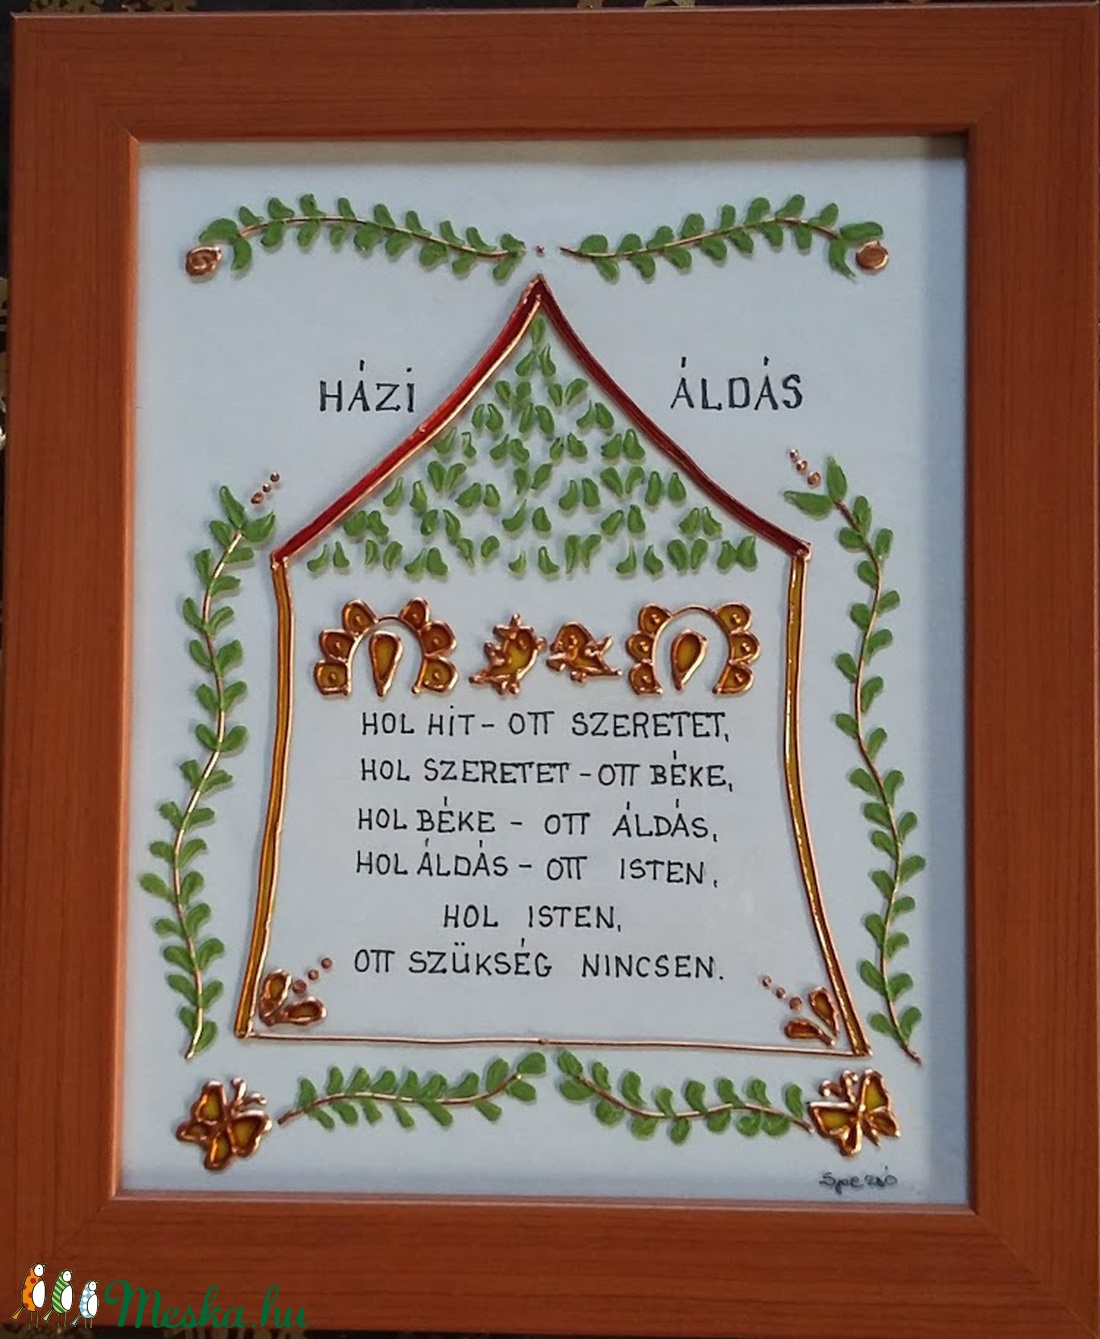 HÁZI ÁLDÁS
HOL HIT - OTT SZERETET,
HOL SZERETET - OTT BÉKE,
HOL BÉKE - OTT ÁLDÁS,
HOL ÁLDÁS - OTT ISTEN,
HOL ISTEN,
OTT SZÜKSÉG NINCSEN.
Meska.hu